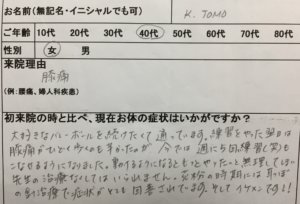 お名前(無記名・イニシャルでも可) K. TOMO
ご年齢 10代 20代 30代 40代 50代 60代 70代
性別 女 男
来院理由 膝痛
(例:腰痛、婦人科疾患)
初来院の時と比べ、現在お体の症状はいかがですか?
大好きなバレーボールを続けたくて通っています。練習をやった翌日は
膝痛がひどく歩くのも辛かったが、今では週に5回練習(笑)も
こなせるようになりました。動けるようになるともっとやりたいと無理してしまい
先生の治療なしではいられません。花粉の時期には耳つぼ
の治療で症状がとても改善されています。そしてイケメンです!